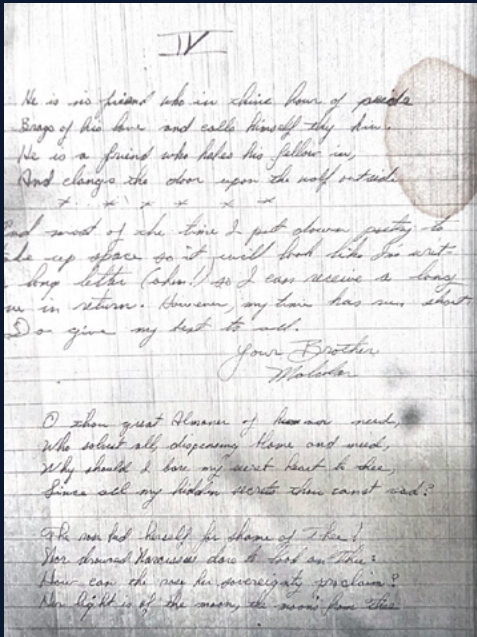 IV
He is no friend who in thine hour of pride
Brags of his love and calls himself thy kin.
He is a friend who hales his fellow in,
And clangs the door upon the wolf outside.
x x x x x x
And most of the time I put down poetry to
take up space so it will look like I'm writ-
a long letter (ahem!) so I can receive a long
one in return. However, my time has run short
Do give my best to all.
Your Brother
Malcolm
O thou great Almoner of need,
Who solvest all, dispensing and weed,
Why should I bare my secret heart to thee,
Since all my hidden secrets thou canst read?
The hid herself for shame of Thee!
Nor drowned Narcissus dare to look on Thee:
How can the rose her sovereignty proclaim?
Her light is of the moon, the moon's from Thee